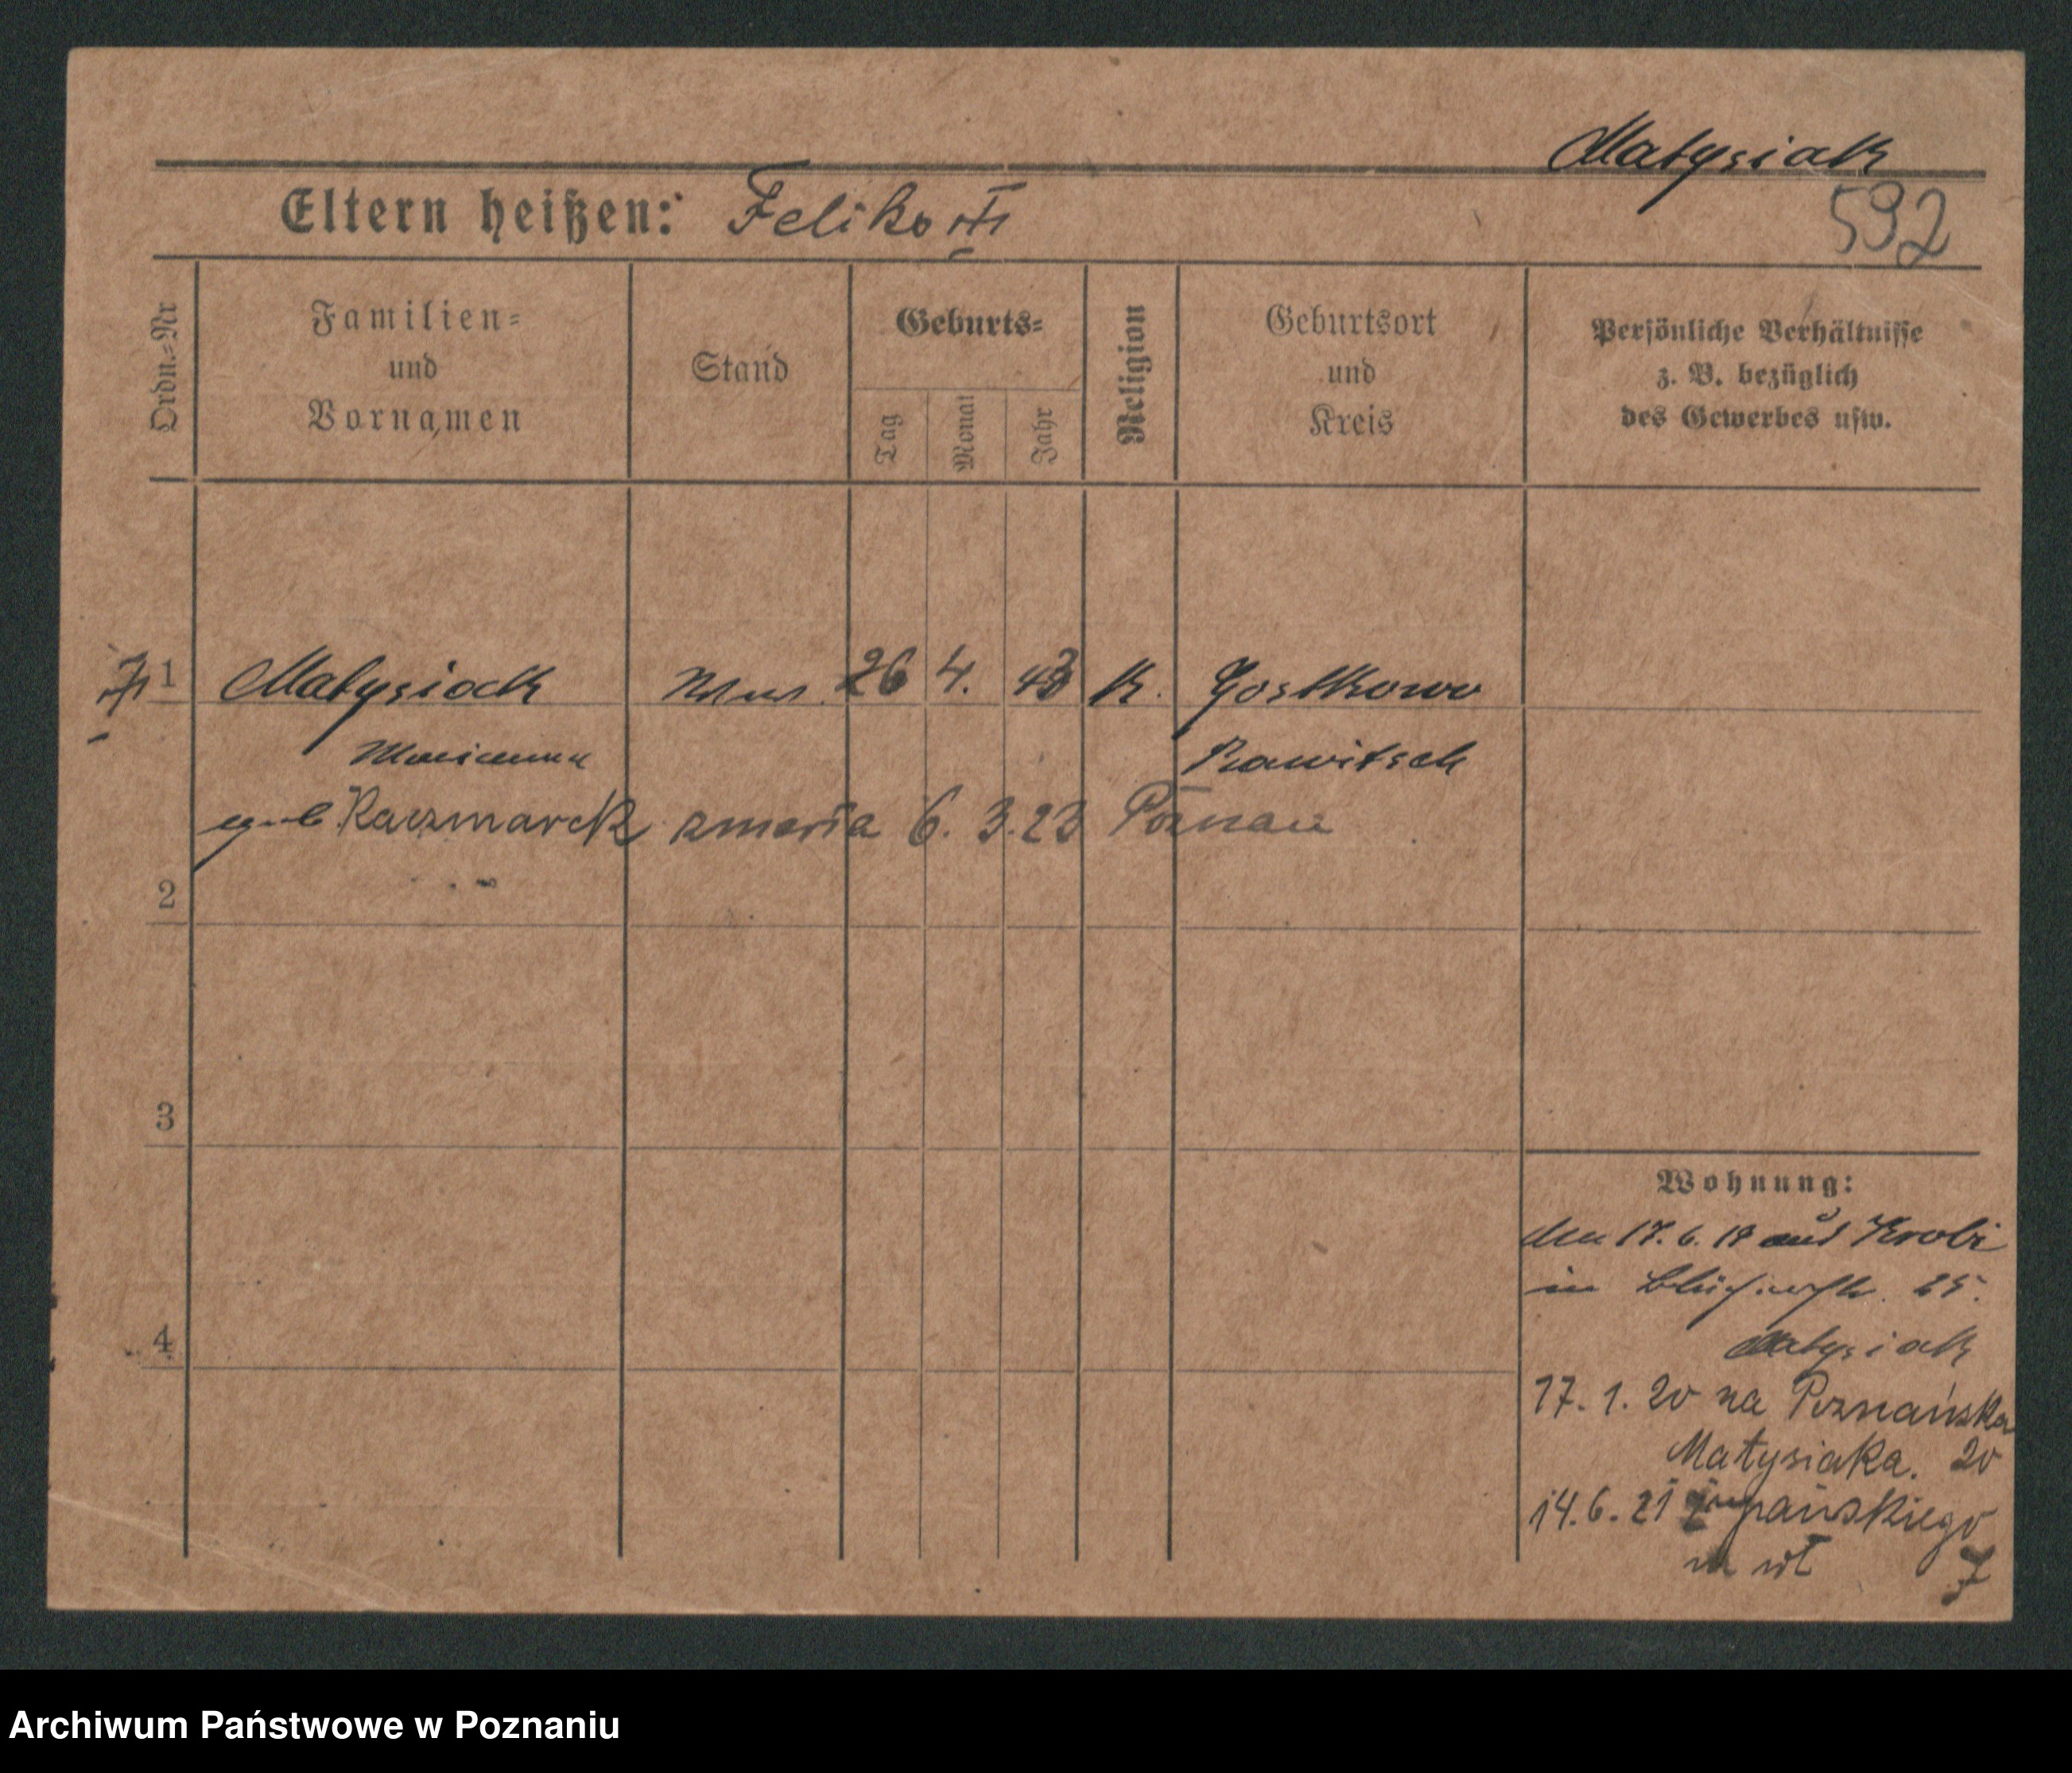 Matysiak
Eltern heißen: Feliks
592
Ordn.=Nr
Familien=
und
Vornamen
Stand
Geburts=
Tag
Monat
Jahr
Religion
Geburtsort
und
Kreis
Persönliche Verhältnisse
z. B. bezüglich
des Gewerbes usw.
1 Matysiack 26 4. 43 K. Gostkowo
Marianna Rawitsch
geb Kaczmarek zmarła 6. 3. 23 Poznań
2
3
4
Wohnung:
den 17. 6. 19 aus Krobi
in 25.
Matysiak
17. 1. 20 na Poznańska
Matysiaka. 20
14. 6. 21 Żupańskiego
7
Archiwum Państwowe w Poznaniu